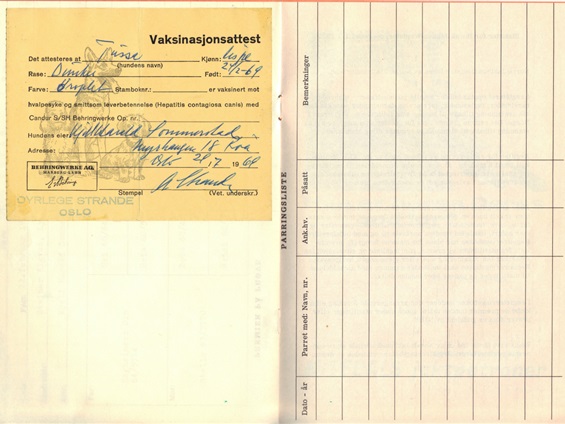 Vaksinasjonsattest
Det attesteres at Tussa Kjønn: tispe
(hundens navn)
Rase: Dunker Født: 21/2-69
Farve: Droplet Stamboknr.: er vaksinert mot
hvalpesyke og smittsom leverbetennelse (Hepatitis contagiosa canis) med
Candur S/SH Behringwerke Op. nr.
Hundens eier: Kjell Harald Sommerstad
Adresse: 18
Oslo 21/7 1969
BEHRINGWERKE AG
MARBURG-LAHN
Stempel (Vet. underskr.)
DYRLEGE STRANDE
OSLO
PARRINGSLISTE
Dato - år
Parret med: Navn, nr.
Ank.hv.
Påsatt
Bemerkninger